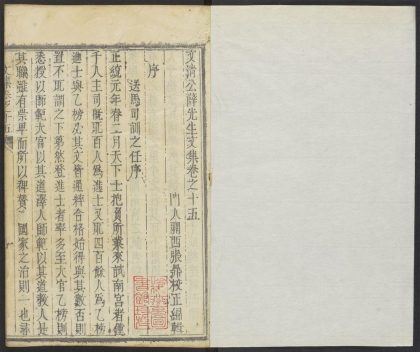 文清公薛先生文集卷之十五
門人關西張鼎校正編輯
序
送馬司訓之任序
正統元年春二月天下士抱負所業來試南宮者僅
千人主司旣取百人爲進士又取四百餘人爲乙榜
進士與乙榜必其文晉選粹合格始得與其數否則
置不取謂之下第然登進士者率多至大官乙榜則
悉授以師範大官以其道澤人師範以其道教人是
其職雖有崇卑而所以裨贊 國家之治則一也